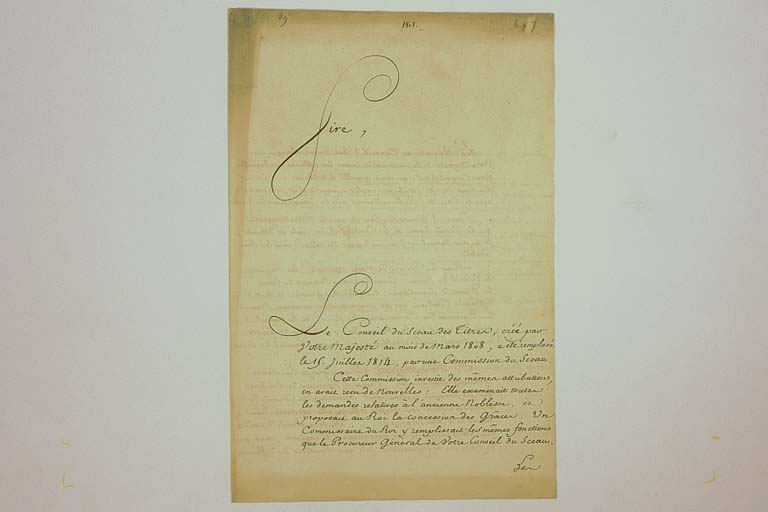 89
1815.
Sire,
Le Conseil du Sceau des Titres, créé par
Votre Majesté au mois de Mars 1808, a été remplacé
le 15. Juillet 1814, par une Commission du Sceau.
Cette Commission investie des mêmes attributions,
en avait reçu de Nouvelles: Elle examinait toutes
les demandes relatives à l'ancienne Noblesse, et
proposait au Roi la concession des Grâces. Un
Commissaire du Roi y remplissait les mêmes fonctions
que le Procureur Général de Votre Conseil du Sceau.
Les